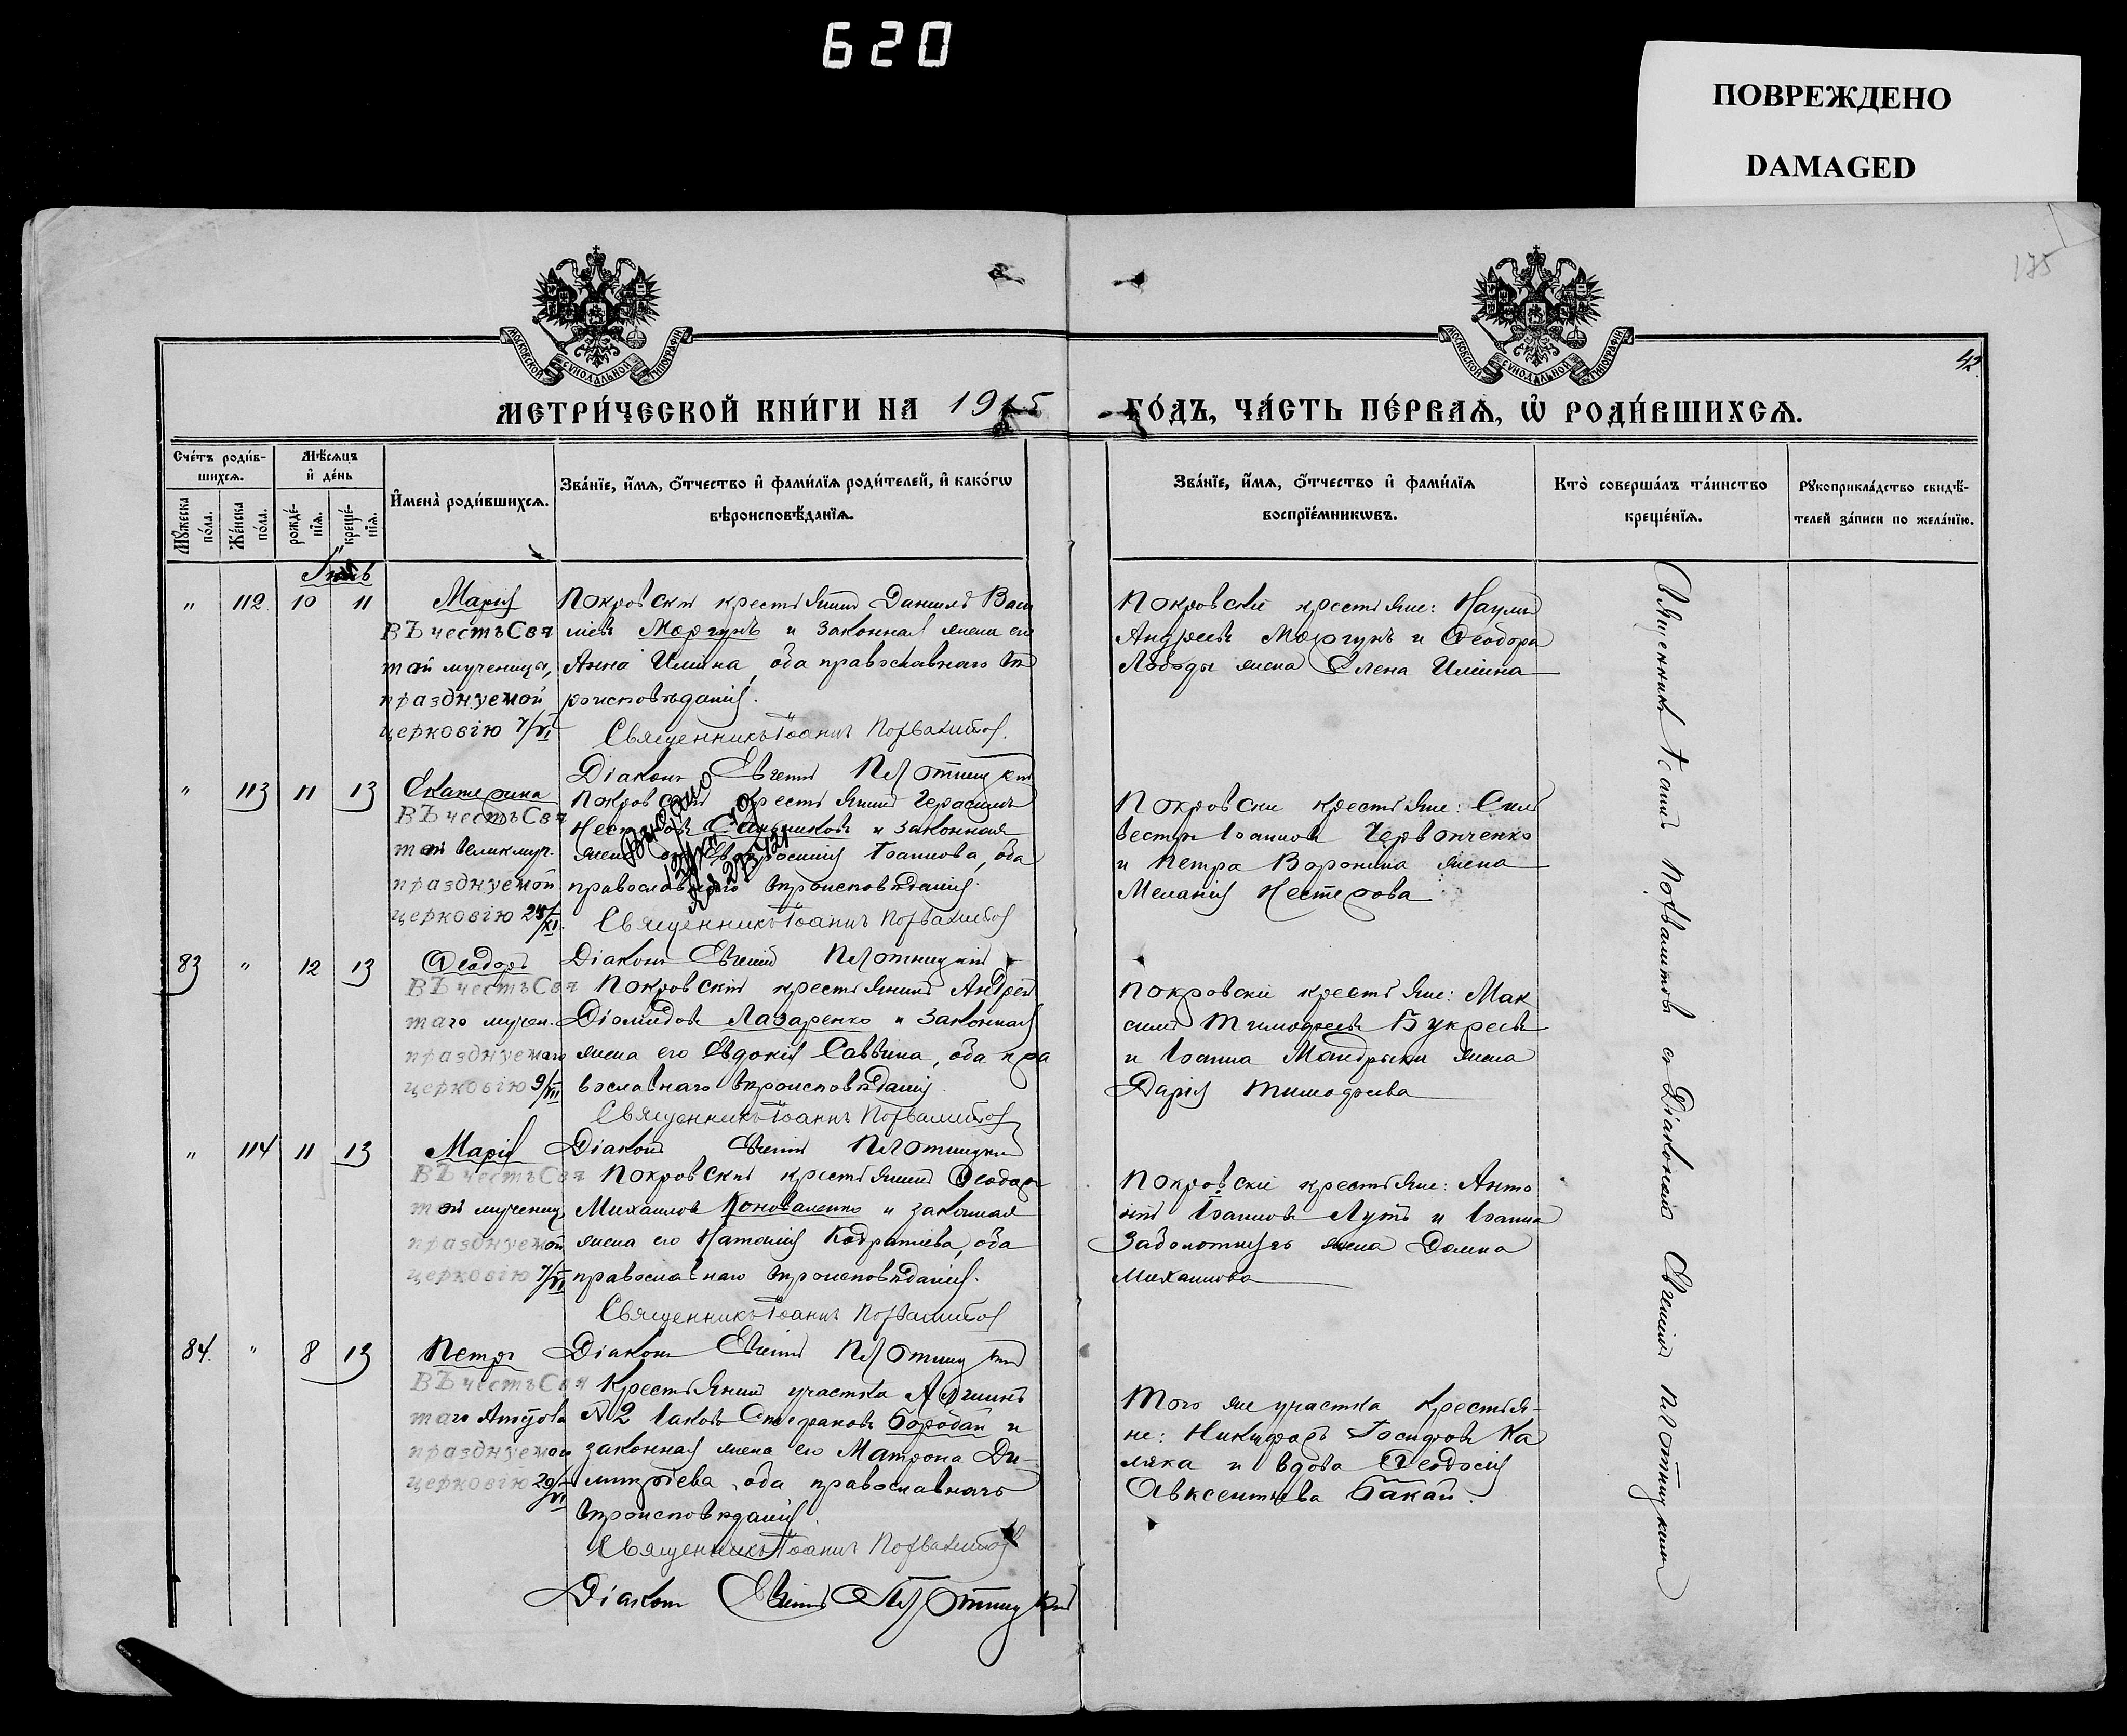 620
ПОВРЕЖДЕНО
DAMAGED
175
42
МОСКОВСКОЙ СУНОДАЛЬНОЙ ТИПОГРАФІИ
МОСКОВСКОЙ СУНОДАЛЬНОЙ ТИПОГРАФІИ
МЕТРИ́ЧЕСКОЙ КНИ́ГИ НА 1915 ГО́ДЪ, ЧА́СТЬ ПЕ́РВАѦ, Ѡ РОДИ́ВШИХСѦ.
Сче́тъ роди́в-
шихсѧ.
Мѣ́сѧцъ
и де́нь
Мꙋ́жеска по́ла.
Же́нска по́ла.
рожде́-
нїѧ.
креще́-
нїѧ.
И҆мена̀ роди́вшихсѧ.
Зва́нїе, и҆́мѧ, ѻ҆́тчество и҆ фами́лїѧ роди́телей, и҆ како́гѡ
вѣроисповѣ́данїѧ.
Зва́нїе, и҆́мѧ, ѻ҆́тчество и҆ фами́лїѧ
воспрїе́мникѡвъ.
Кто̀ соверша́лъ та́инство
креще́нїѧ.
Рꙋкоприкла́дство свидѣ́-
телей за́писи по жела́нїю.
" 112. 10 11 Марія
Въ честь Свя
той мученицы,
празднуемой
церковію 7/VI
Покровскій крестьянинъ Даніилъ Васи
ліевъ Моргунъ и законная жена его
Анна Ильина, оба православнаго вѣ
роисповѣданія.
Священникъ Іоаннъ Похвалитовъ.
Діаконъ Евгеній Плотницкій
Покровскіе крестьяне: Наумъ
Андреевъ Моргунъ и Ѳеодора
Лободы жена Елена Ильина
" 113 11 13 Екатерина
Въ честь Свя
той великмуч.
празднуемой
церковію 24/XI.
Покровскій крестьянинъ Герасимъ
Несторовъ и законная
жена его Евфросинія Іоаннова, оба
православнаго вѣроисповѣданія.
Священникъ Іоаннъ Похвалитовъ
Діаконъ Евгеній Плотницкій
Покровскіе крестьяне: Силь
вестръ Іоанновъ Червонченко
и Петра Воронина жена
Меланія Нестерова
83 " 12 13 Ѳеодоръ
Въ честь Свя
таго мучен.
празднуемаго
церковію 9/VIII
Покровскій крестьянинъ Андрей
Діомидовъ Лазаренко и законная
жена его Евдокія Саввина, оба пра
вославнаго вѣроисповѣданія
Священникъ Іоаннъ Похвалитовъ
Діаконъ Евгеній Плотницкій
Покровскіе крестьяне: Мак
симъ Тимофеевъ Букреевъ
и Іоанна Мандрыки жена
Дарія Тимофеева
" 114 11 13 Марія
Въ честь Свя
той мучениц
празднуемой
церковію 7/VI
Покровскій крестьянинъ Ѳеодоръ
Михаиловъ Коноваленко и законная
жена его Наталія Кодратіева, оба
православнаго вѣроисповѣданія.
Священникъ Іоаннъ Похвалитовъ
Діаконъ Евгеній Плотницкій
Покровскіе крестьяне: Анто
ній Іоанновъ Лутъ и Іоанна
Заболотняго жена Домна
Михаилова
84. " 8 13 Петръ
Въ честь Свя
таго Апостола
празднуемой
церковію 29/VI
Крестьянинъ участка
№2 Іаковъ Стефановъ Бородай и
законная жена его Матрона Ди-
митріева, оба православнаго
вѣроисповѣданія.
Священникъ Іоаннъ Похвалитовъ
Діаконъ Евгеній Плотницкій
Того же участка крестья-
не: Никифоръ Іосифовъ Ка
ляка и вдова Ѳеодосія
Авксентіева Бакай.
Священникъ Іоаннъ Похвалитовъ съ Діакономъ Евгеніемъ Плотницкимъ